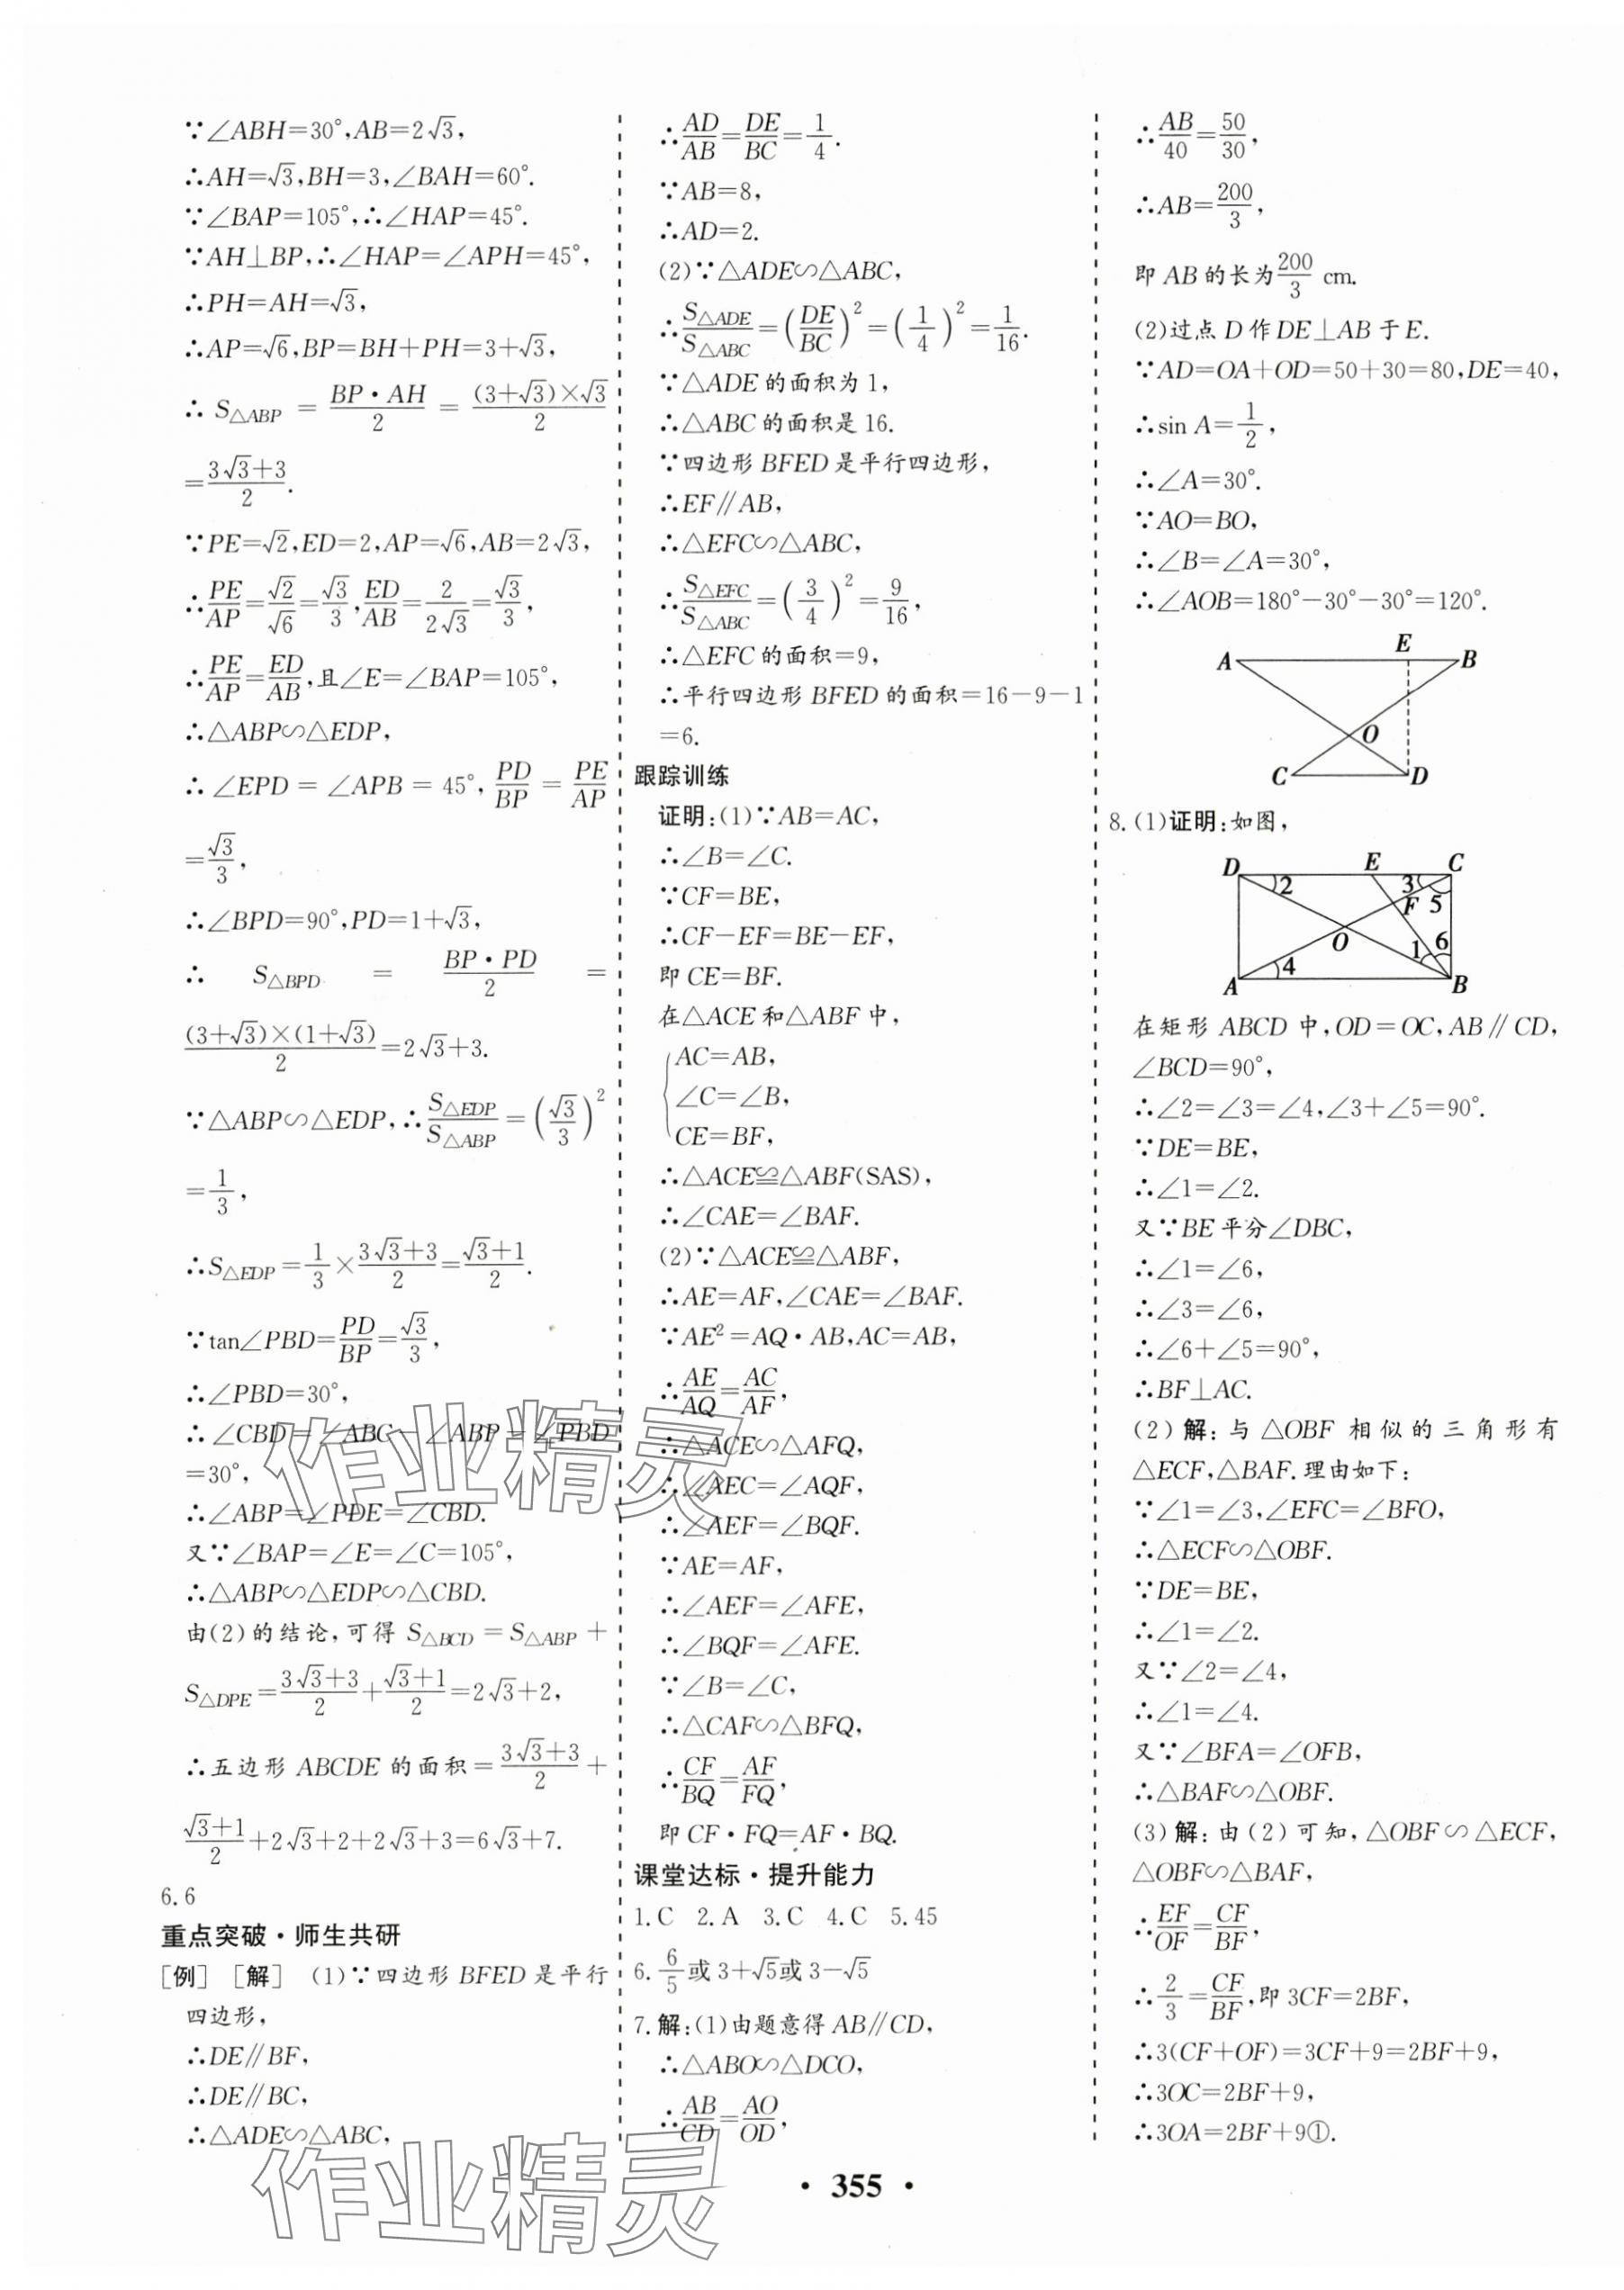 ∵∠ABH=30°,AB=2√3,
∴AH=√3,BH=3,∠BAH=60°.
∵∠BAP=105°,∴∠HAP=45°.
∵AH⊥BP,∴∠HAP=∠APH=45°,
∴PH=AH=√3,
∴AP=√6,BP=BH+PH=3+√3,
∴ S△ABP = BP·AH/2 = (3+√3)×√3/2
=(3√3+3)/2.
∵PE=√2,ED=2,AP=√6,AB=2√3,
∴PE/AP=√2/√6=√3/3,ED/AB=2/(2√3)=√3/3,
∴PE/AP=ED/AB,且∠E=∠BAP=105°,
∴△ABP∽△EDP,
∴ ∠EPD = ∠APB = 45°, PD/BP = PE/AP
=√3/3,
∴∠BPD=90°,PD=1+√3,
∴ S△BPD = BP·PD/2 =
(3+√3)×(1+√3)/2=2√3+3.
∵△ABP∽△EDP,∴S△EDP/S△ABP=(√3/3)²
=1/3,
∴S△EDP=1/3×(3√3+3)/2=(√3+1)/2.
∵tan∠PBD=PD/BP=√3/3,
∴∠PBD=30°,
∴∠CBD=∠ABC-∠ABP-∠PBD
=30°,
∴∠ABP=∠PDE=∠CBD.
又∵∠BAP=∠E=∠C=105°,
∴△ABP∽△EDP∽△CBD.
由(2)的结论,可得 S△BCD=S△ABP+
S△DPE=(3√3+3)/2+(√3+1)/2=2√3+2,
∴五边形 ABCDE 的面积=(3√3+3)/2+
(√3+1)/2+2√3+2+2√3+3=6√3+7.
6.6
重点突破·师生共研
[例] [解] (1)∵四边形 BFED 是平行
四边形,
∴DE∥BF,
∴DE∥BC,
∴△ADE∽△ABC,
∴AD/AB=DE/BC=1/4.
∵AB=8,
∴AD=2.
(2)∵△ADE∽△ABC,
∴S△ADE/S△ABC=(DE/BC)²=(1/4)²=1/16.
∵△ADE 的面积为 1,
∴△ABC 的面积是 16.
∵四边形 BFED 是平行四边形,
∴EF∥AB,
∴△EFC∽△ABC,
∴S△EFC/S△ABC=(3/4)²=9/16,
∴△EFC 的面积=9,
∴平行四边形 BFED 的面积=16-9-1
=6.
跟踪训练
证明:(1)∵AB=AC,
∴∠B=∠C.
∵CF=BE,
∴CF-EF=BE-EF,
即 CE=BF.
在△ACE 和△ABF 中,
AC=AB,
∠C=∠B,
CE=BF,
∴△ACE≌△ABF(SAS),
∴∠CAE=∠BAF.
(2)∵△ACE≌△ABF,
∴AE=AF,∠CAE=∠BAF.
∵AE²=AQ·AB,AC=AB,
∴AE/AQ=AC/AF,
∴△ACE∽△AFQ,
∴∠AEC=∠AQF,
∴∠AEF=∠BQF.
∵AE=AF,
∴∠AEF=∠AFE,
∴∠BQF=∠AFE.
∵∠B=∠C,
∴△CAF∽△BFQ,
∴CF/BQ=AF/FQ,
即 CF·FQ=AF·BQ.
课堂达标·提升能力
1.C 2.A 3.C 4.C 5.45
6.6/5或3+√5或3-√5
7.解:(1)由题意得 AB∥CD,
∴△ABO∽△DCO,
∴AB/CD=AO/OD,
∴AB/40=50/30,
∴AB=200/3,
即 AB 的长为200/3 cm.
(2)过点 D 作 DE⊥AB 于 E.
∵AD=OA+OD=50+30=80,DE=40,
∴sin A=1/2,
∴∠A=30°.
∵AO=BO,
∴∠B=∠A=30°,
∴∠AOB=180°-30°-30°=120°.
A E B
O
C D
8.(1)证明:如图,
D E C
2 3
F 5
O 1 6
4
A B
在矩形 ABCD 中,OD=OC,AB∥CD,
∠BCD=90°,
∴∠2=∠3=∠4,∠3+∠5=90°.
∵DE=BE,
∴∠1=∠2.
又∵BE 平分∠DBC,
∴∠1=∠6,
∴∠3=∠6,
∴∠6+∠5=90°,
∴BF⊥AC.
(2)解:与△OBF 相似的三角形有
△ECF,△BAF.理由如下:
∵∠1=∠3,∠EFC=∠BFO,
∴△ECF∽△OBF.
∵DE=BE,
∴∠1=∠2.
又∵∠2=∠4,
∴∠1=∠4.
又∵∠BFA=∠OFB,
∴△BAF∽△OBF.
(3)解:由(2)可知,△OBF∽△ECF,
△OBF∽△BAF,
∴EF/OF=CF/BF,
∴2/3=CF/BF,即 3CF=2BF,
∴3(CF+OF)=3CF+9=2BF+9,
∴3OC=2BF+9,
∴3OA=2BF+9①.
· 355 ·
作业精灵
作业精灵